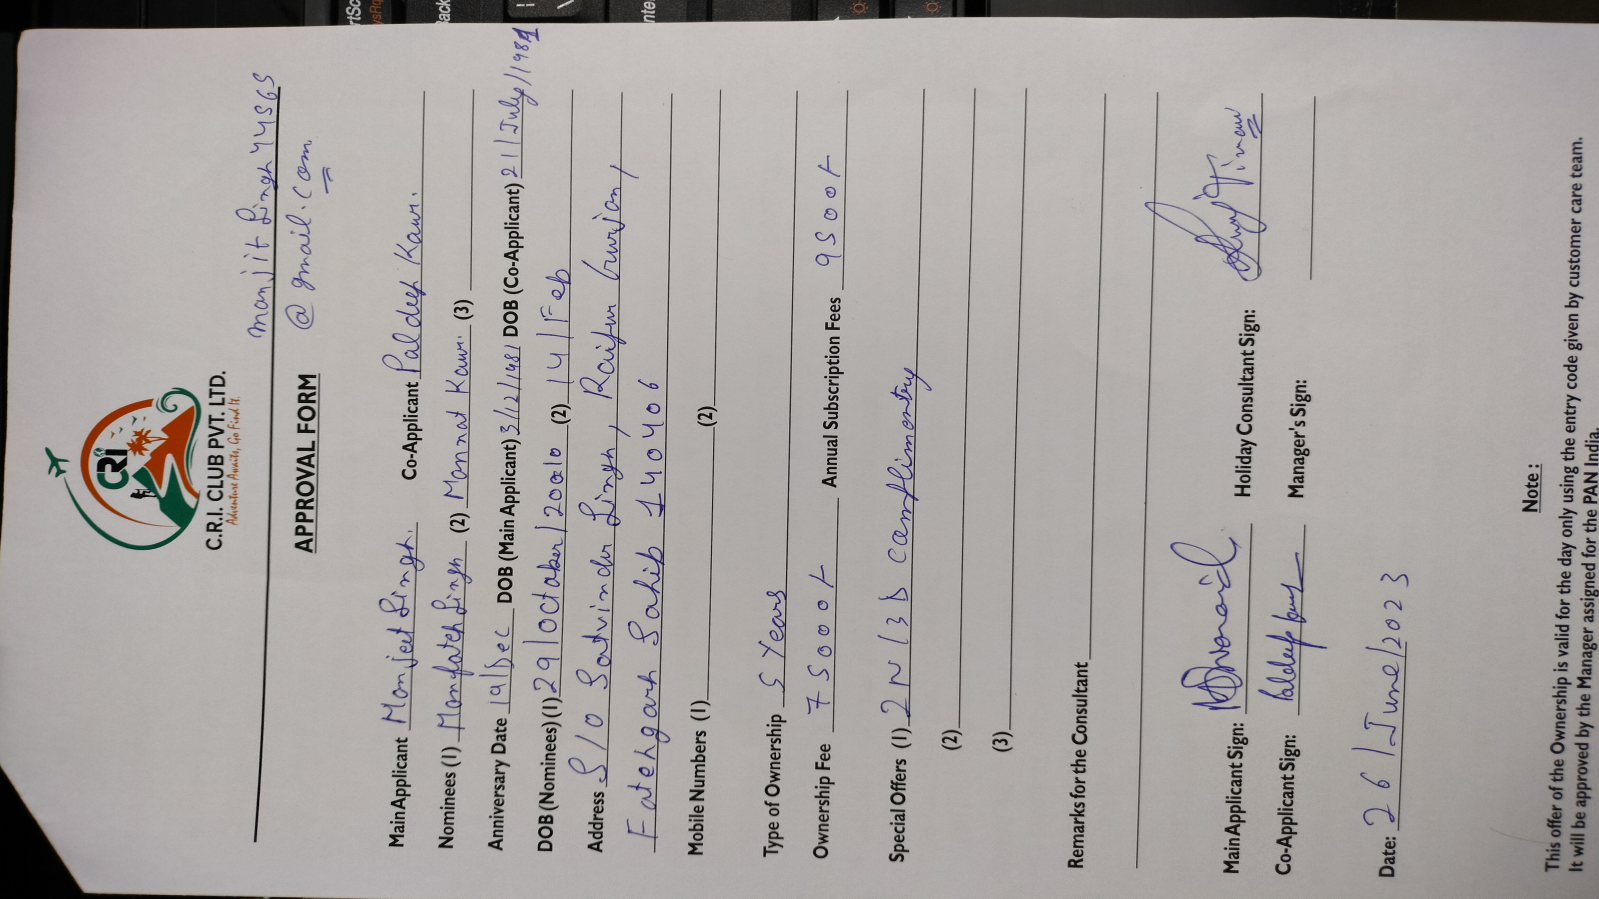 CRI
C.R.I. CLUB PVT. LTD.
Adventure Awaits, Go Find It.
manjit Singh44565
@gmail.com
APPROVAL FORM
Main Applicant Manjeet Singh. Co-Applicant Paldeep Kaur.
Nominees (1) Manfateh Singh (2) Mannat Kaur. (3)
Anniversary Date 19/Dec DOB (Main Applicant) 3/12/1981 DOB (Co-Applicant) 21/July/1981
DOB (Nominees) (1) 29/October/2010 (2) 14/Feb
Address S/O Satvinder Singh, Raipur Gurjan,
Fatehgarh Sahib 140406
Mobile Numbers (1) (2)
Type of Ownership 5 Years
Ownership Fee 75000/- Annual Subscription Fees 9500/-
Special Offers (1) 2N/3D complimontry
(2)
(3)
Remarks for the Consultant
Main Applicant Sign: Holiday Consultant Sign:
Co-Applicant Sign: Paldeep Kaur Manager's Sign:
Date: 26/June/2023
Note :
This offer of the Ownership is valid for the day only using the entry code given by customer care team.
It will be approved by the Manager assigned for the PAN India.